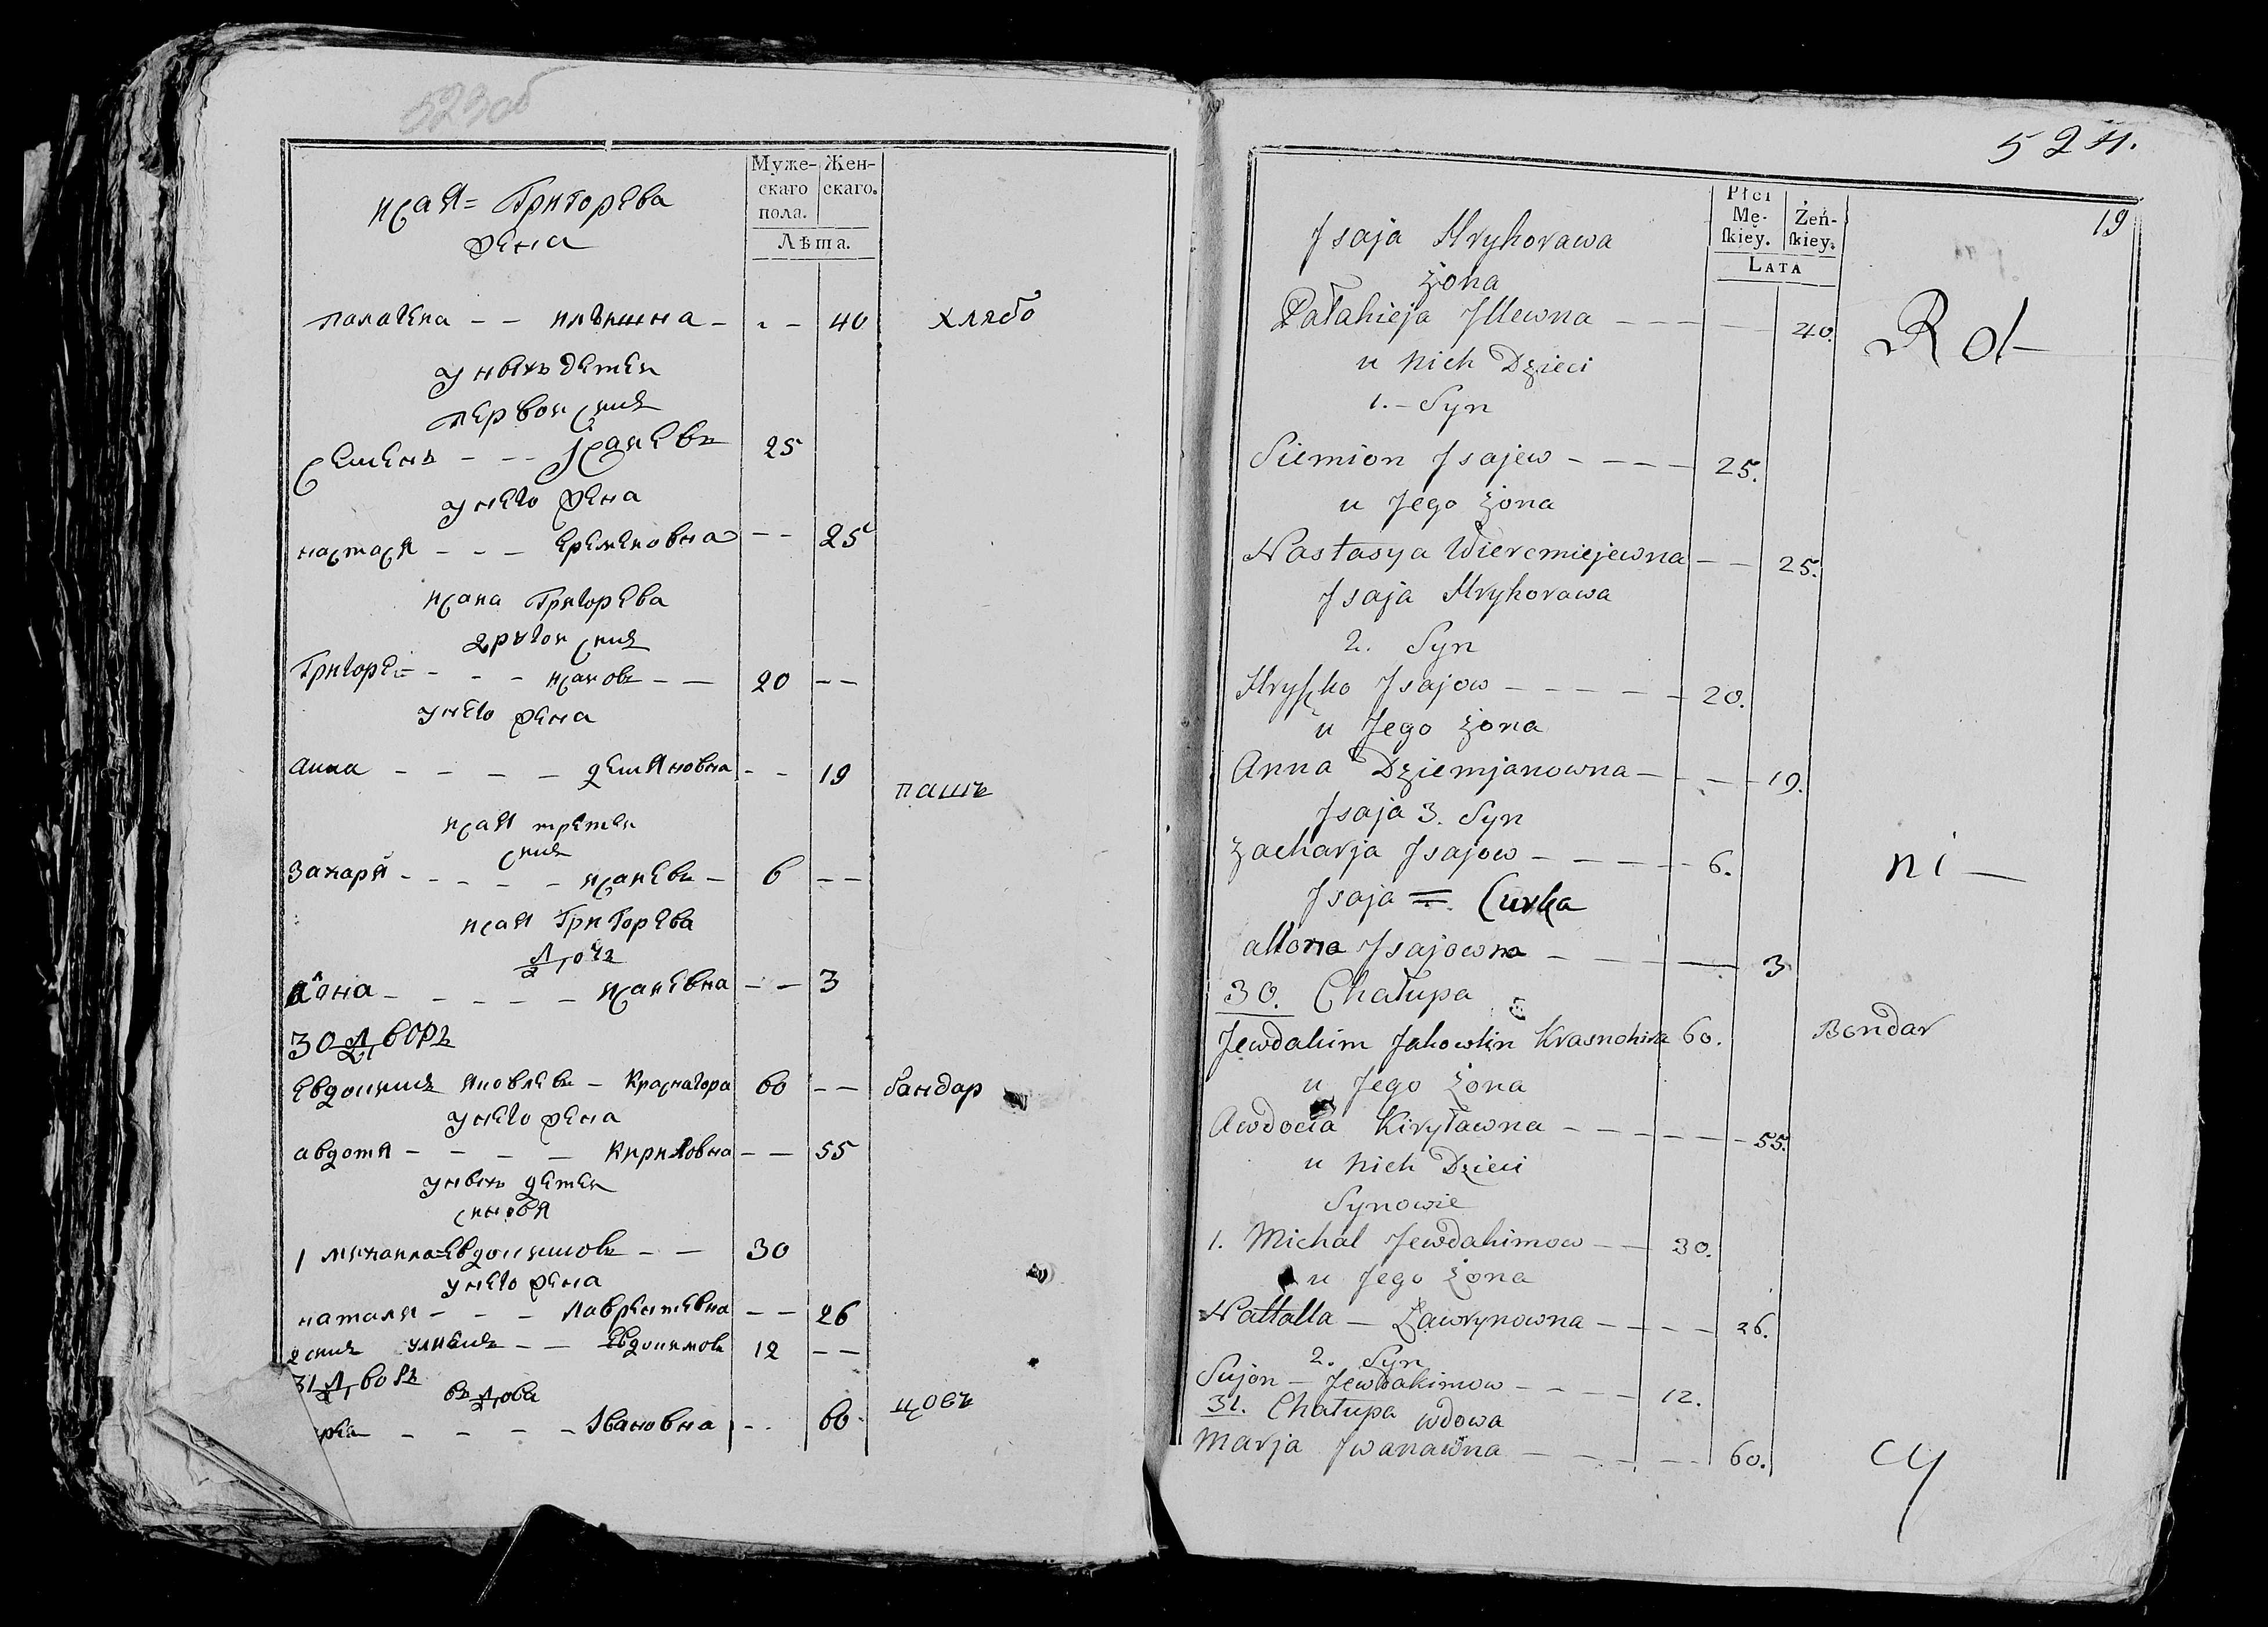 Муже- Жен-
скаго скаго.
пола.
Лѣта.
исая= Григорева
жена
палагея - - илъишна - - - 40 хлябо
унихъ детеи
первои сынъ
семенъ - - - Исаиевъ 25
унего жена
настася - - - еремеиовна - - 25
исаиа Григорева
другои сынъ
Григореи - - - исаиовъ - - 20 - -
унего жена
анна - - - - демяновна - - 19
пашъ
исая третеи
сынъ
Захаря - - - - - исаиевъ - 6 - -
исая Григорева
дочъ
- - - - - исаиевна - - 3
30 дворъ
Евдокимъ яковлевъ - Краснагора 60 - - бандар
унего жена
авдотя - - - - Кириловна - - 55
унихъ детеи
сыновя
1 михаила=Евдокимовъ - - 30
унего жена
наталя - - - Лаврентевна - - 26
2 сынъ - - Евдокимовъ 12 - -
31 дворъ
вдова
- - - - Ивановна - - 60 цовъ
524.
19
Płci
Mę- Żeń-
skiey. skiey.
LATA
Jsaja Hryhorawa
żona
Pałahieja Jllewna - - - - 40. Rol-
u nich Dzieci
1. - Syn
Siemion Jsajew - - - - 25.
u Jego żona
Nastasya Wieremiejewna - - 25.
Jsaja Hryhorawa
2. Syn
Hryszko Jsajow - - - - - 20.
u Jego żona
Anna Dziemjanowna - - - - 19.
Jsaja 3. Syn
Zacharja Jsajow - - - - - 6. ni -
Jsaja =. Curka
Jsajowna - - - 3
30. Chałupa
Jewdakim Jakowlin Krasnohira 60. Bondar
u Jego żona
Awdocia Kiryławna - - - - - - 55.
u nich Dzieci
Synowie
1. Michał Jewdakimow - - 30.
u Jego żona
Nattalla - Ławrynowna - - - - 26.
2. Syn
Sujon - Jewdakimow - - - - 12.
31. Chałupa wdowa
Marja Jwanawna - - - - - 60. cy